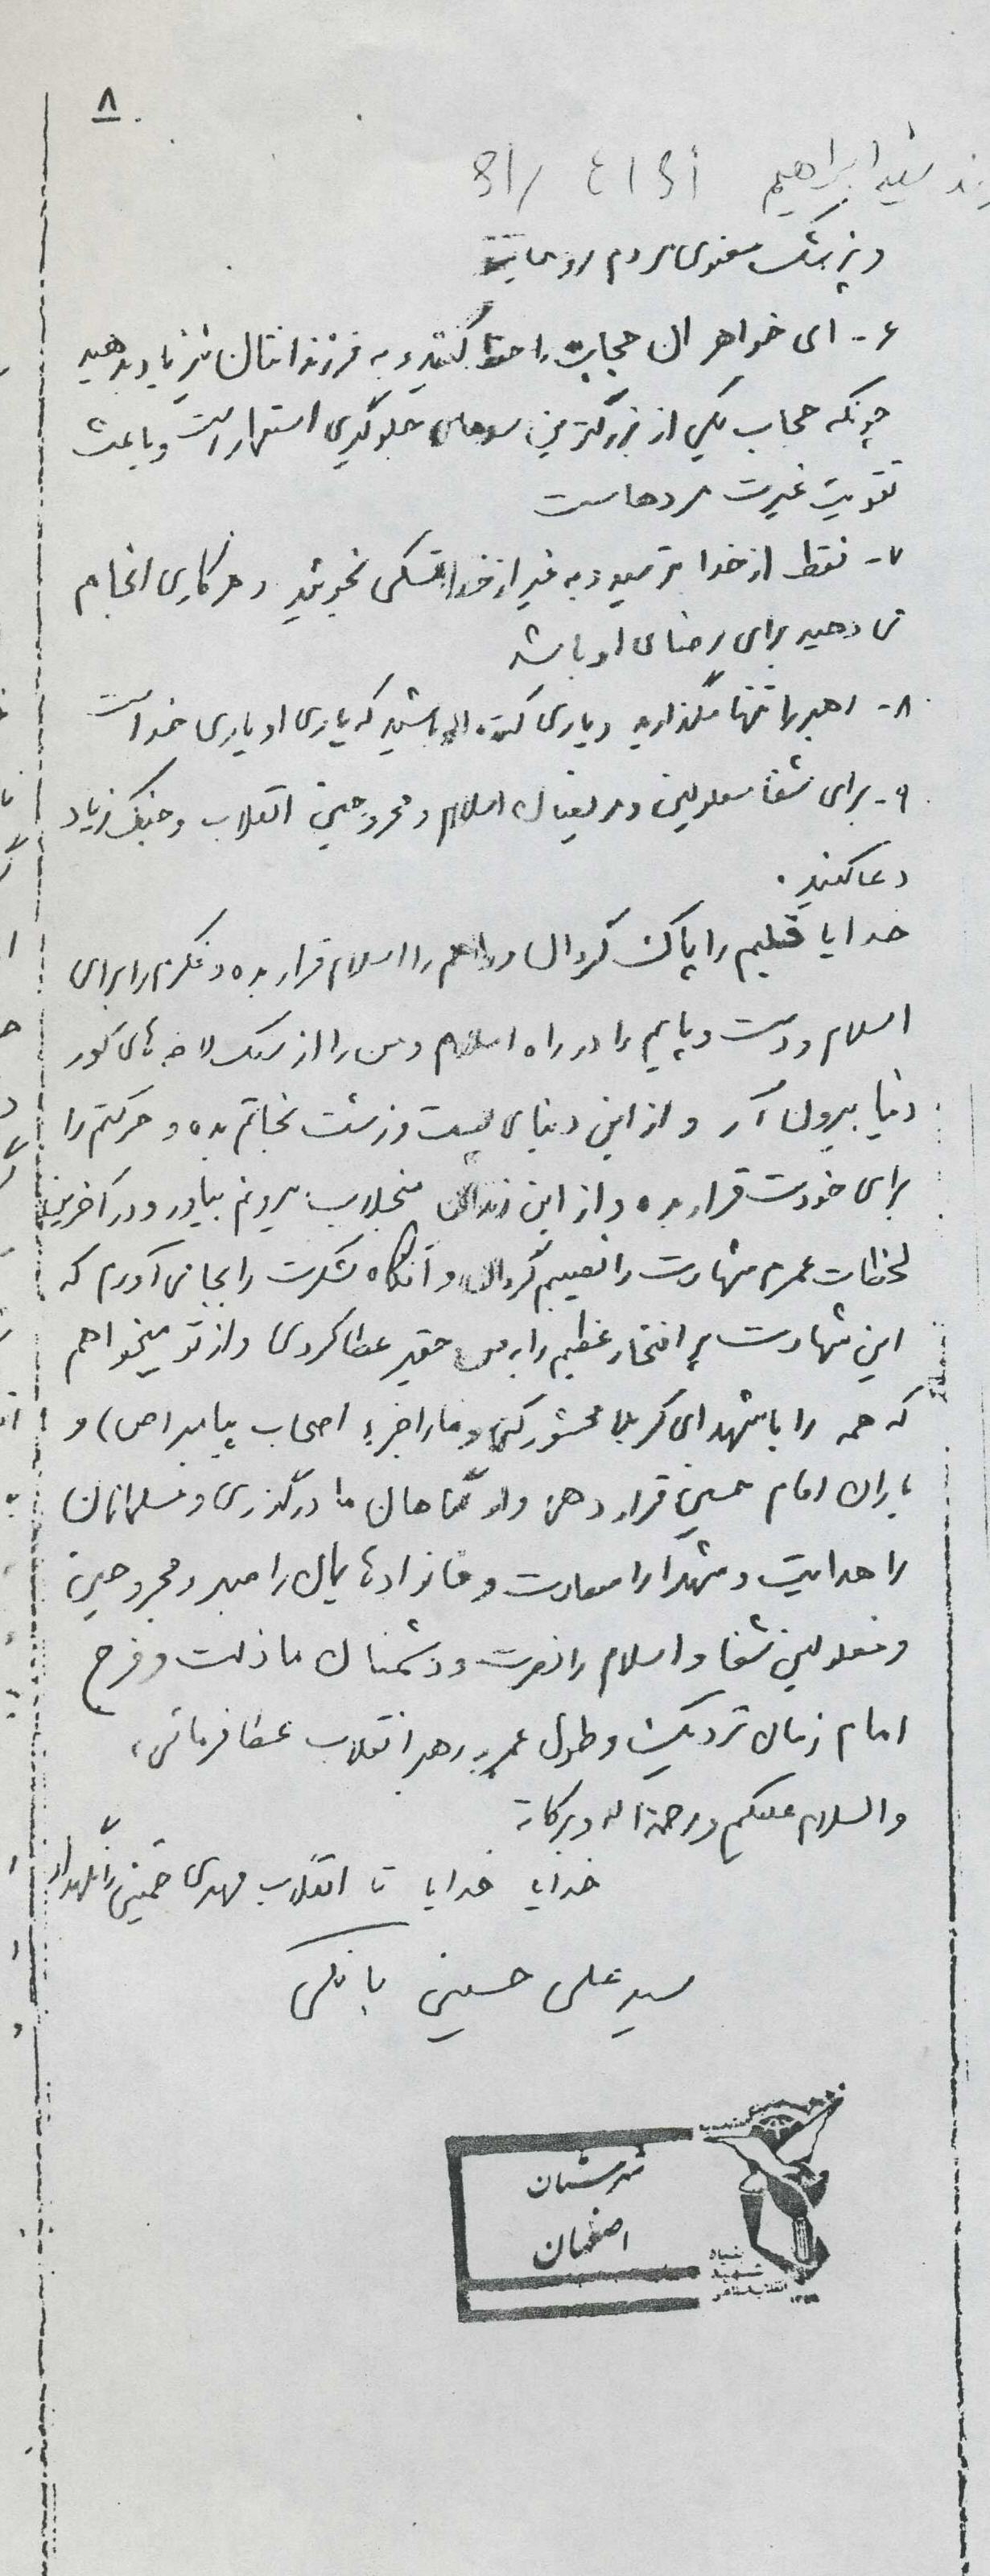 ۸
ابراهیم
و پزشک معنوی مردم روحانیت
۶- ای خواهران حجاب را حفظ کنید و به فرزندانتان نیز یاد بدهید
چونکه حجاب یکی از بزرگترین سدهای جلوگیری استعمار است و باعث
تقویت غیرت مردهاست
۷- فقط از خدا بترسید و به غیر از خدا تمسکی نجوئید و هر کاری انجام
می دهید برای رضای او باشد
۸- رهبر را تنها مگذارید و یاری کننده او باشید که یاری او یاری خداست
۹- برای شفا معلولین و مریضان اسلام و مجروحین انقلاب و جنگ زیاد
دعا کنید.
خدایا قلبم را پاک گردان و راهم را اسلام قرار بده و فکرم را برای
اسلام و دست و پایم را در راه اسلام و من را از سنگ لاخ های کور
دنیا بیرون آر و از این دنیای پست و زشت نجاتم بده و حرکتم را
برای خودت قرار بده و از این زندان منجلاب بیرونم بیاور و در آخرین
لحظات عمرم شهادت را نصیبم گردان و آنگاه شکرت را بجا می آورم که
این شهادت پر افتخار عظیم را به من حقیر عطا کردی و از تو میخواهم
که همه را با شهدای کربلا محشور کنی و ما را جزء اصحاب پیامبر (ص) و
یاران امام حسین قرار دهی و از گناهان ما درگذری و مسلمانان
را هدایت و شهدا را سعادت و خانوادهایمان را صبر و مجروحین
و معلولین شفا و اسلام را نصرت و دشمنان ما ذلت و فرج
امام زمان نزدیک و طول عمر به رهبر انقلاب عطا فرمائی،
والسلام علیکم و رحمة اله و برکاته
خدایا خدایا تا انقلاب مهدی خمینی را نگهدار
سید علی حسینی بانکی
شهرستان
اصفهان
بنیاد
شهید
انقلاب اسلامی